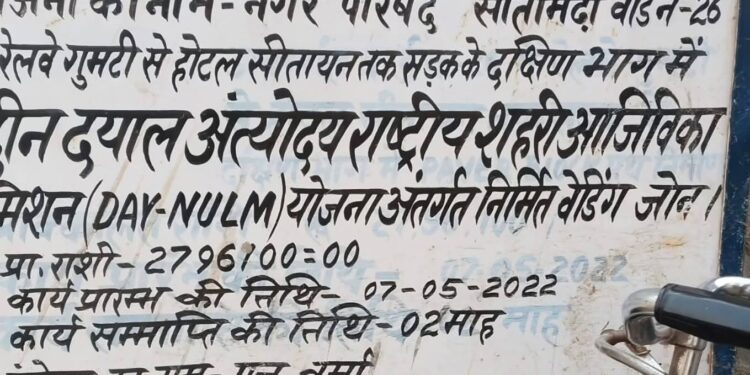 योजना का नाम - नगर परिषद सीतामढ़ी वार्ड न-26
रेलवे गुमटी से होटल सीतायन तक सड़क के दक्षिण भाग में
दीन दयाल अंत्योदय राष्ट्रीय शहरी आजिविका
मिशन (DAY-NULM) योजना अंतर्गत निर्मित वेडिंग जोन।
प्रा. राशी - 2796100=00
कार्य प्रारम्भ की तिथि - 07-05-2022
कार्य सम्माप्ति की तिथि - 02 माह
वर्मा